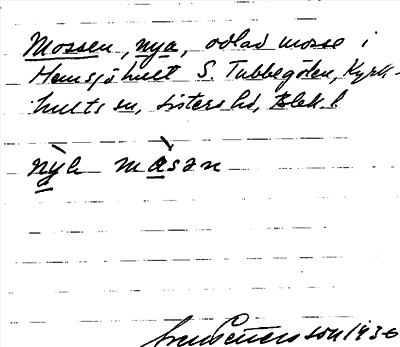 Mossen, nya, odlad mosse i
Hemsjöhult S. Tubbegölen, Kyrk-
hults sn, Listers hd, Blek. l
nỳa måsən
Petersson 1936